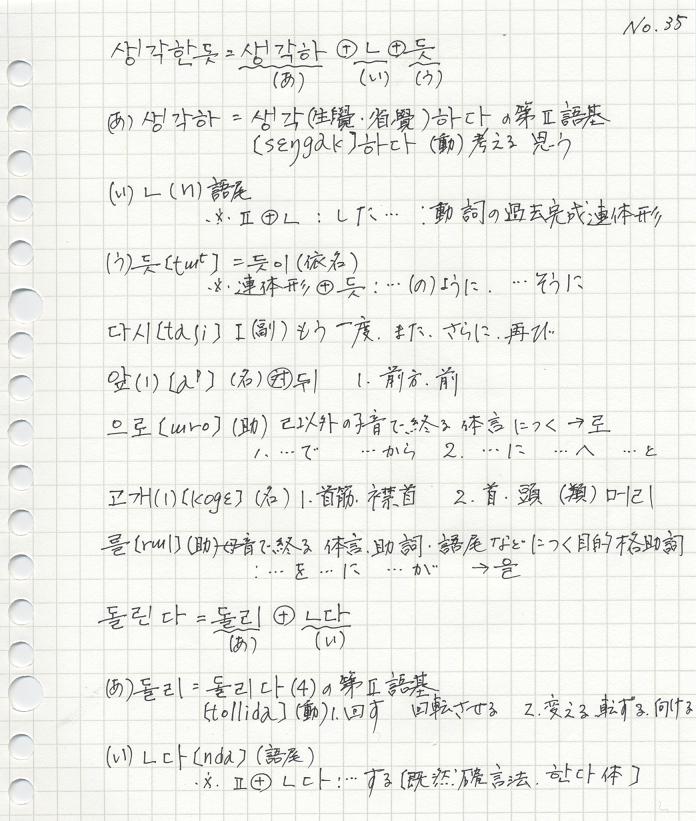 No.35
생각한듯 = 생각하 ⊕ ㄴ ⊕ 듯
(あ) (い) (う)
(あ) 생각하 = 생각(生覺・省覺)하다 の第Ⅱ語基
[sεŋgak]하다 (動) 考える 思う
(い) ㄴ (n) 語尾
※ Ⅱ⊕ㄴ : した… : 動詞の過去完成連体形
(う) 듯[tɯᵗ] = 듯이 (依名)
※ 連体形⊕듯 : …(の)ように、…そうに
다시 [taʃi] Ⅰ (副) もう一度、また、さらに、再び
앞(1) [aᵖ] (名) 対 뒤 1. 前方、前
으로 [ɯro] (助) ㄹ以外の子音で終る 体言につく → 로
1. …で …から 2. …に …へ …と
고개(1) [kogε] (名) 1. 首筋、襟首 2. 首・頭 (類) 머리
를 [rɯl] (助) 母音で終る 体言、助詞・語尾などにつく目的格助詞
: …を …に …が → 을
돌린다 = 돌리 ⊕ ㄴ다
(あ) (い)
(あ) 돌리 = 돌리다 (4) の第Ⅱ語基
[tollida] (動) 1. 回す 回転させる 2. 変える、転ずる、向ける
(い) ㄴ다 [nda] (語尾)
※ Ⅱ⊕ㄴ다 : …する [既然確言法、한다体]